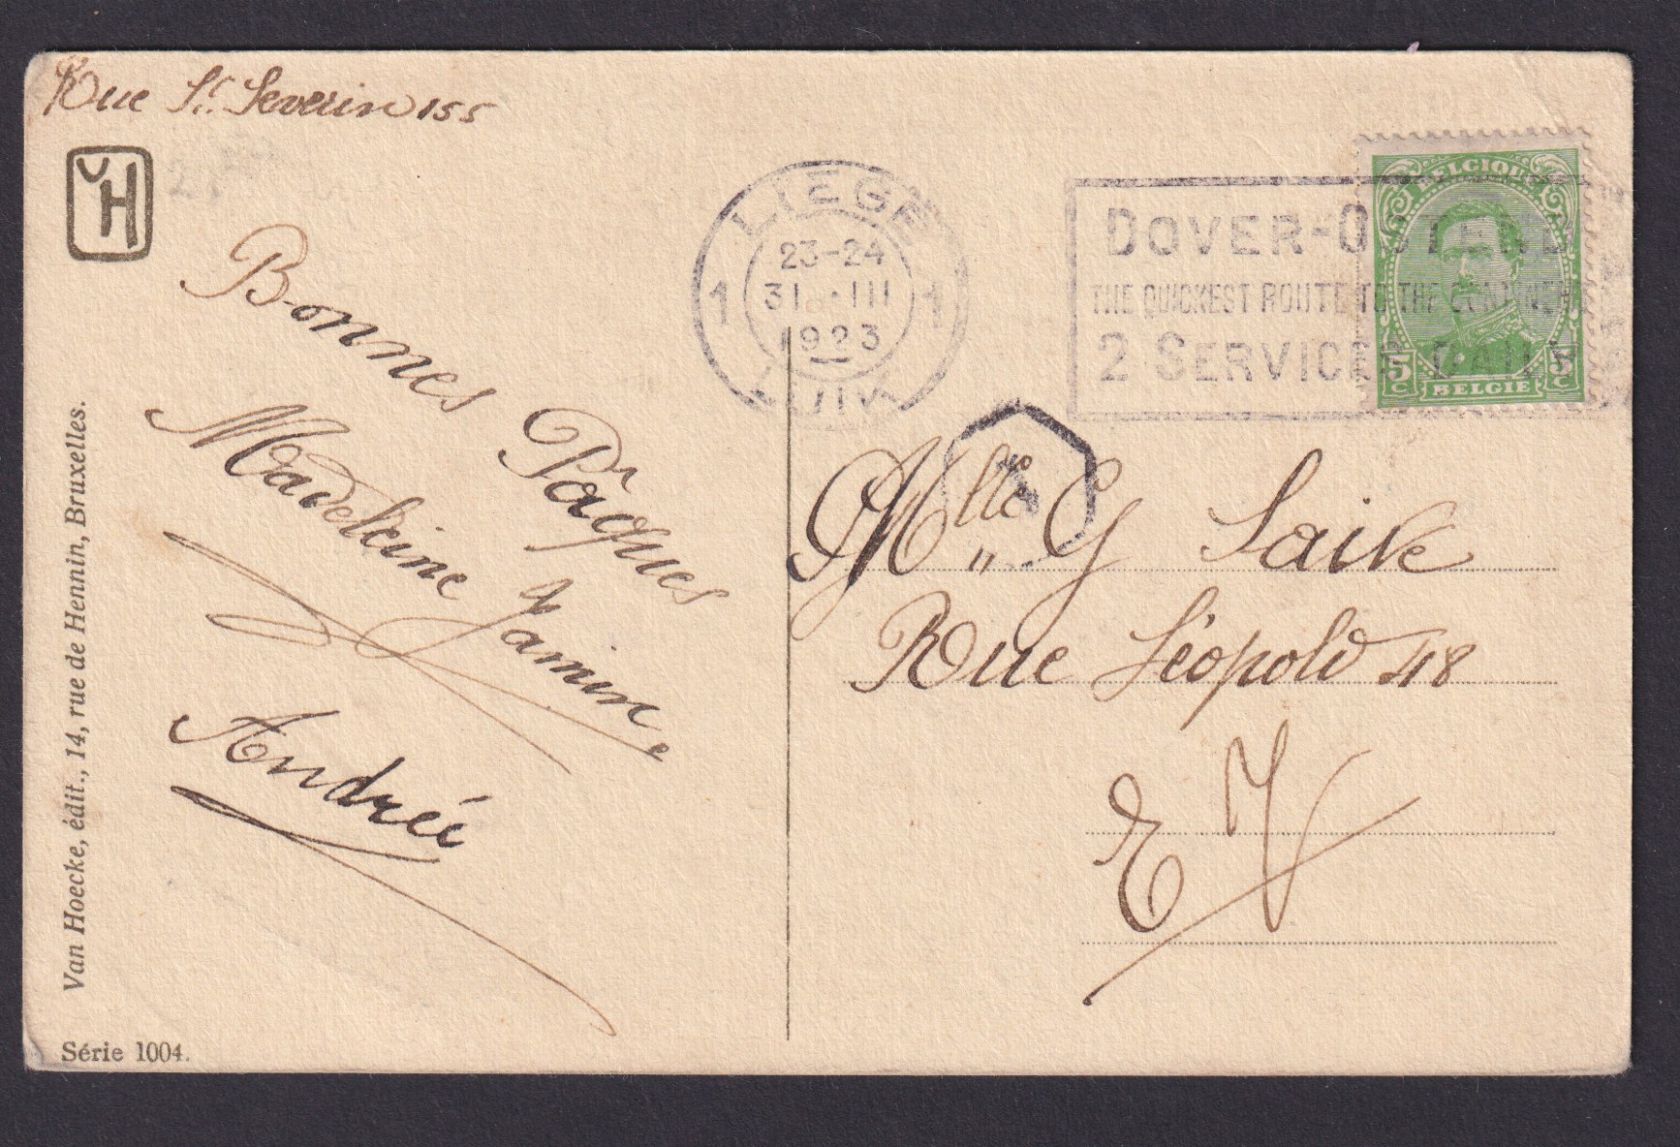 Rue St. Severin 155
VH
Bonnes Pâques
Madeleine Jamin
Andrée
Van Hoecke, édit., 14, rue de Hennin, Bruxelles.
Série 1004.
LIEGE
1 1
23-24
31 · III
1923
LUIK
DOVER-OSTEND
THE QUICKEST ROUTE TO THE CONTINENT
2 SERVICES DAILY
BELGIQUE
5 C 5 C
BELGIE
Mlle G Laive
Rue Léopold 48
E V